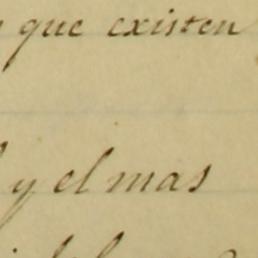 que existen
y el mas